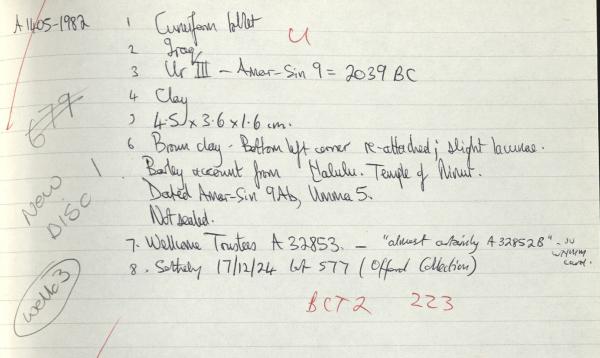 A1405-1982
1 Cuneiform tablet
U
2 Iraq
3 Ur III - Amar-Sin 9 = 2039 BC
4 Clay
5 4.5 x 3.6 x 1.6 cm.
679
6 Brown clay - Bottom left corner re-attached; slight lacunae.
Barley account from Halulu. Temple of
Dated Amar-Sin 9Ab, Umma 5.
Not sealed.
NEW DISC
7. Wellcome Trustees A 32853. - "almost certainly A 32852B" - JJ
card.
8. Sotheby 17/12/24 lot 577 (Offord Collection)
Wello 3
BCT2 223